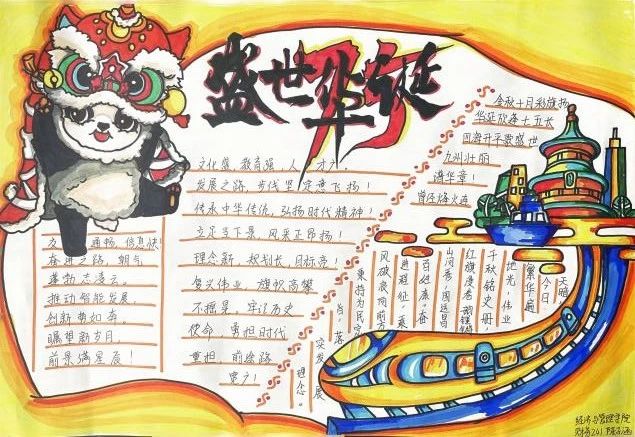 盛世华诞
文化盛，教育强，人才广，
发展之路，步伐坚定意飞扬！
传承中华传统，弘扬时代精神！
立足当下景，风采正昂扬！
理念新，规划长，目标亮！
复兴伟业，旗帜高攀
不摇晃，牢记历史
使命，勇担时代
重担，前途路
宽广！
交通畅，信息快！
奋进之路，朝气
蓬勃志凌云。
推动智能发展，
创新势如奔。
瞩望新岁月，
前景满星辰！
金秋十月彩旗扬
华诞欣每七五长
四海升平歌盛世
九州壮丽
谱华章！
曾经烽火连
天暗
今日
繁华遍
地光，伟业
千秋铭史册，
红旗漫卷
山河秀，国运昌
百姓康，奋
进征程
风破浪向前方
秉持为民宗
旨，落
实发展
理念。
经济与管理学院
财务241